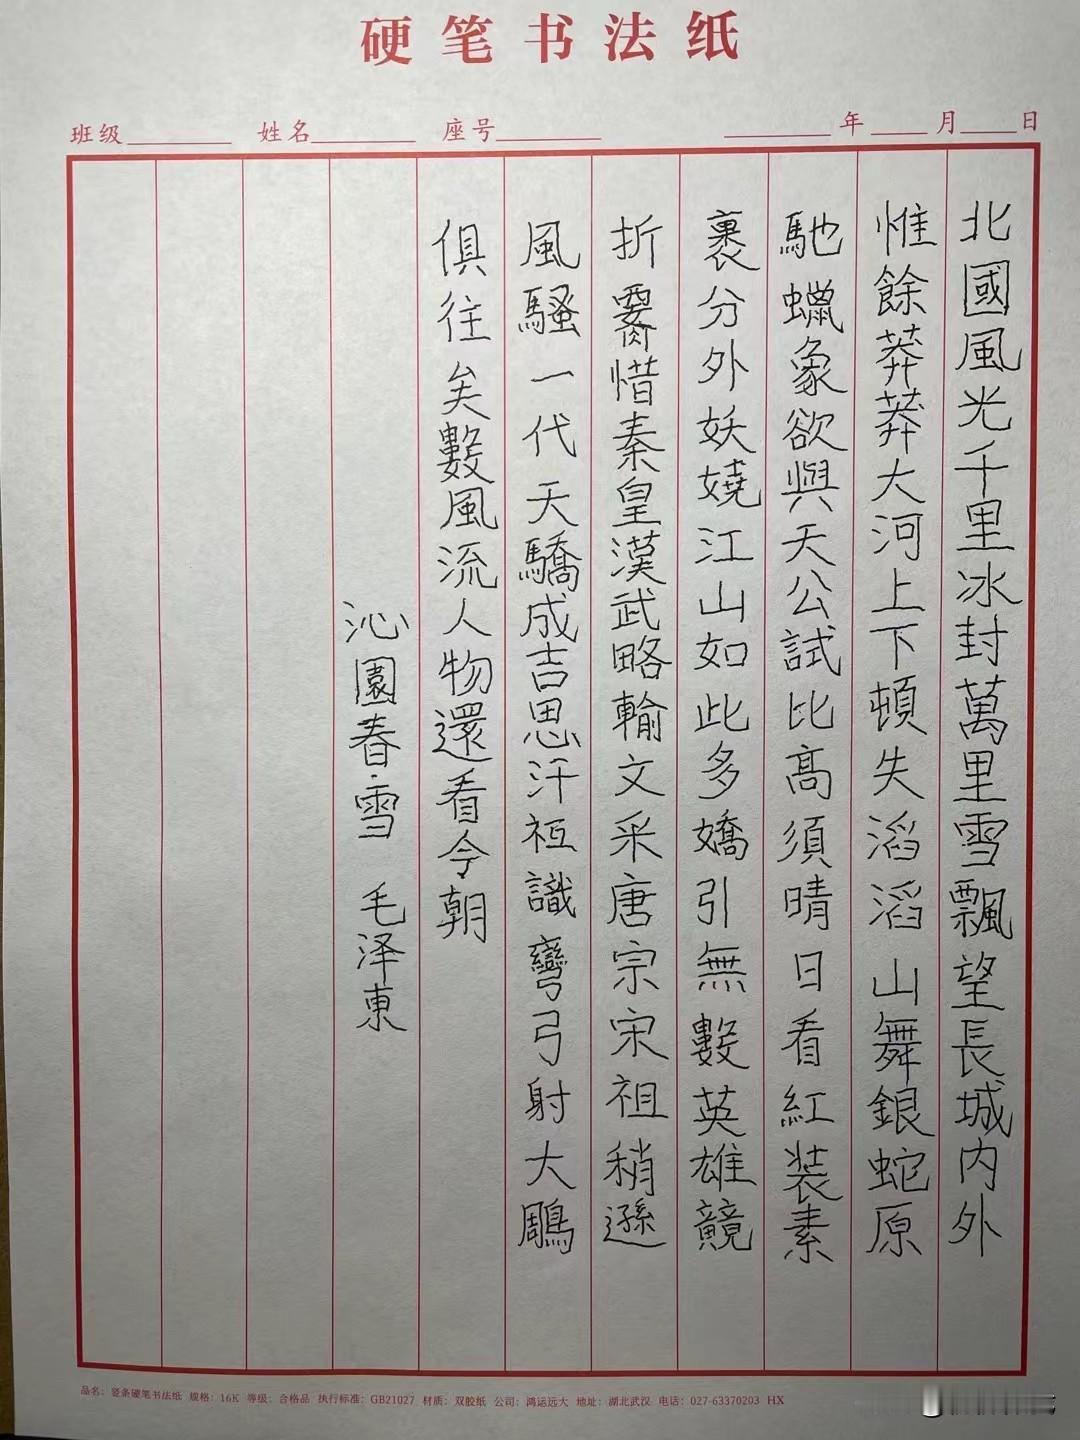 硬笔书法纸
班级 姓名 座号 年 月 日
北國風光千里冰封萬里雪飄望長城内外
惟餘莽莽大河上下頓失滔滔山舞銀蛇原
馳蠟象欲與天公試比高須晴日看紅装素
裹分外妖嬈江山如此多嬌引無數英雄競
折腰惜秦皇漢武略輸文采唐宗宋祖稍遜
風騷一代天驕成吉思汗袛識彎弓射大鵰
俱往矣數風流人物還看今朝
沁園春·雪 毛泽東
品名：竖条硬笔书法纸 规格：16K 等级：合格品 执行标准：GB21027 材质：双胶纸 公司：鸿运远大 地址：湖北武汉 电话：027-63370203 HX